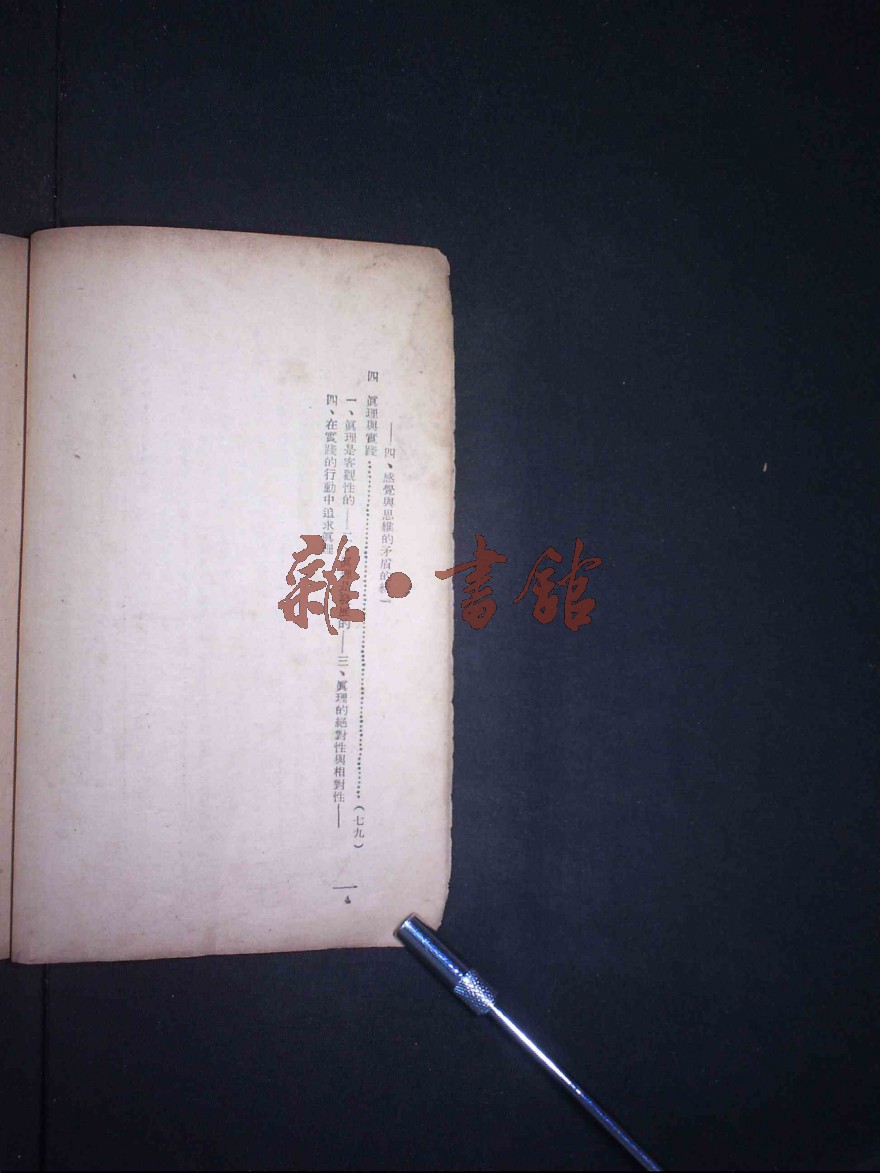 ——四、感覺與思維的矛盾的統一
四　眞理與實踐…………………………（七九）
一、眞理是客觀性的——二、的——三、眞理的絕對性與相對性——
四、在實踐的行動中追求眞理
4
雜·書館